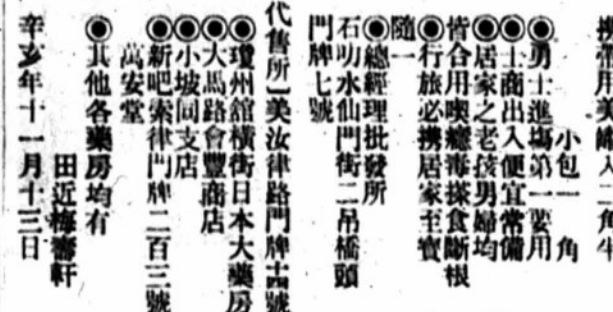 小包一角
◉勇士進塲第一要用
◉士商出入便宜常備
◉居家之老孩男婦均
皆合用喫癮毒搽食斷根
◉行旅必携居家至寳
隨一
◉總經理批發所
石叻水仙門街二吊橋頭
門牌七號
代售所〕美汝律路門牌號
◉瓊州舘橫街日本大藥房
◉大馬路會豐商店
◉小坡同支店
◉新吧索律門牌二百三號
萬安堂
◉其他各藥房均有
田近梅壽軒
辛亥年十一月十三日